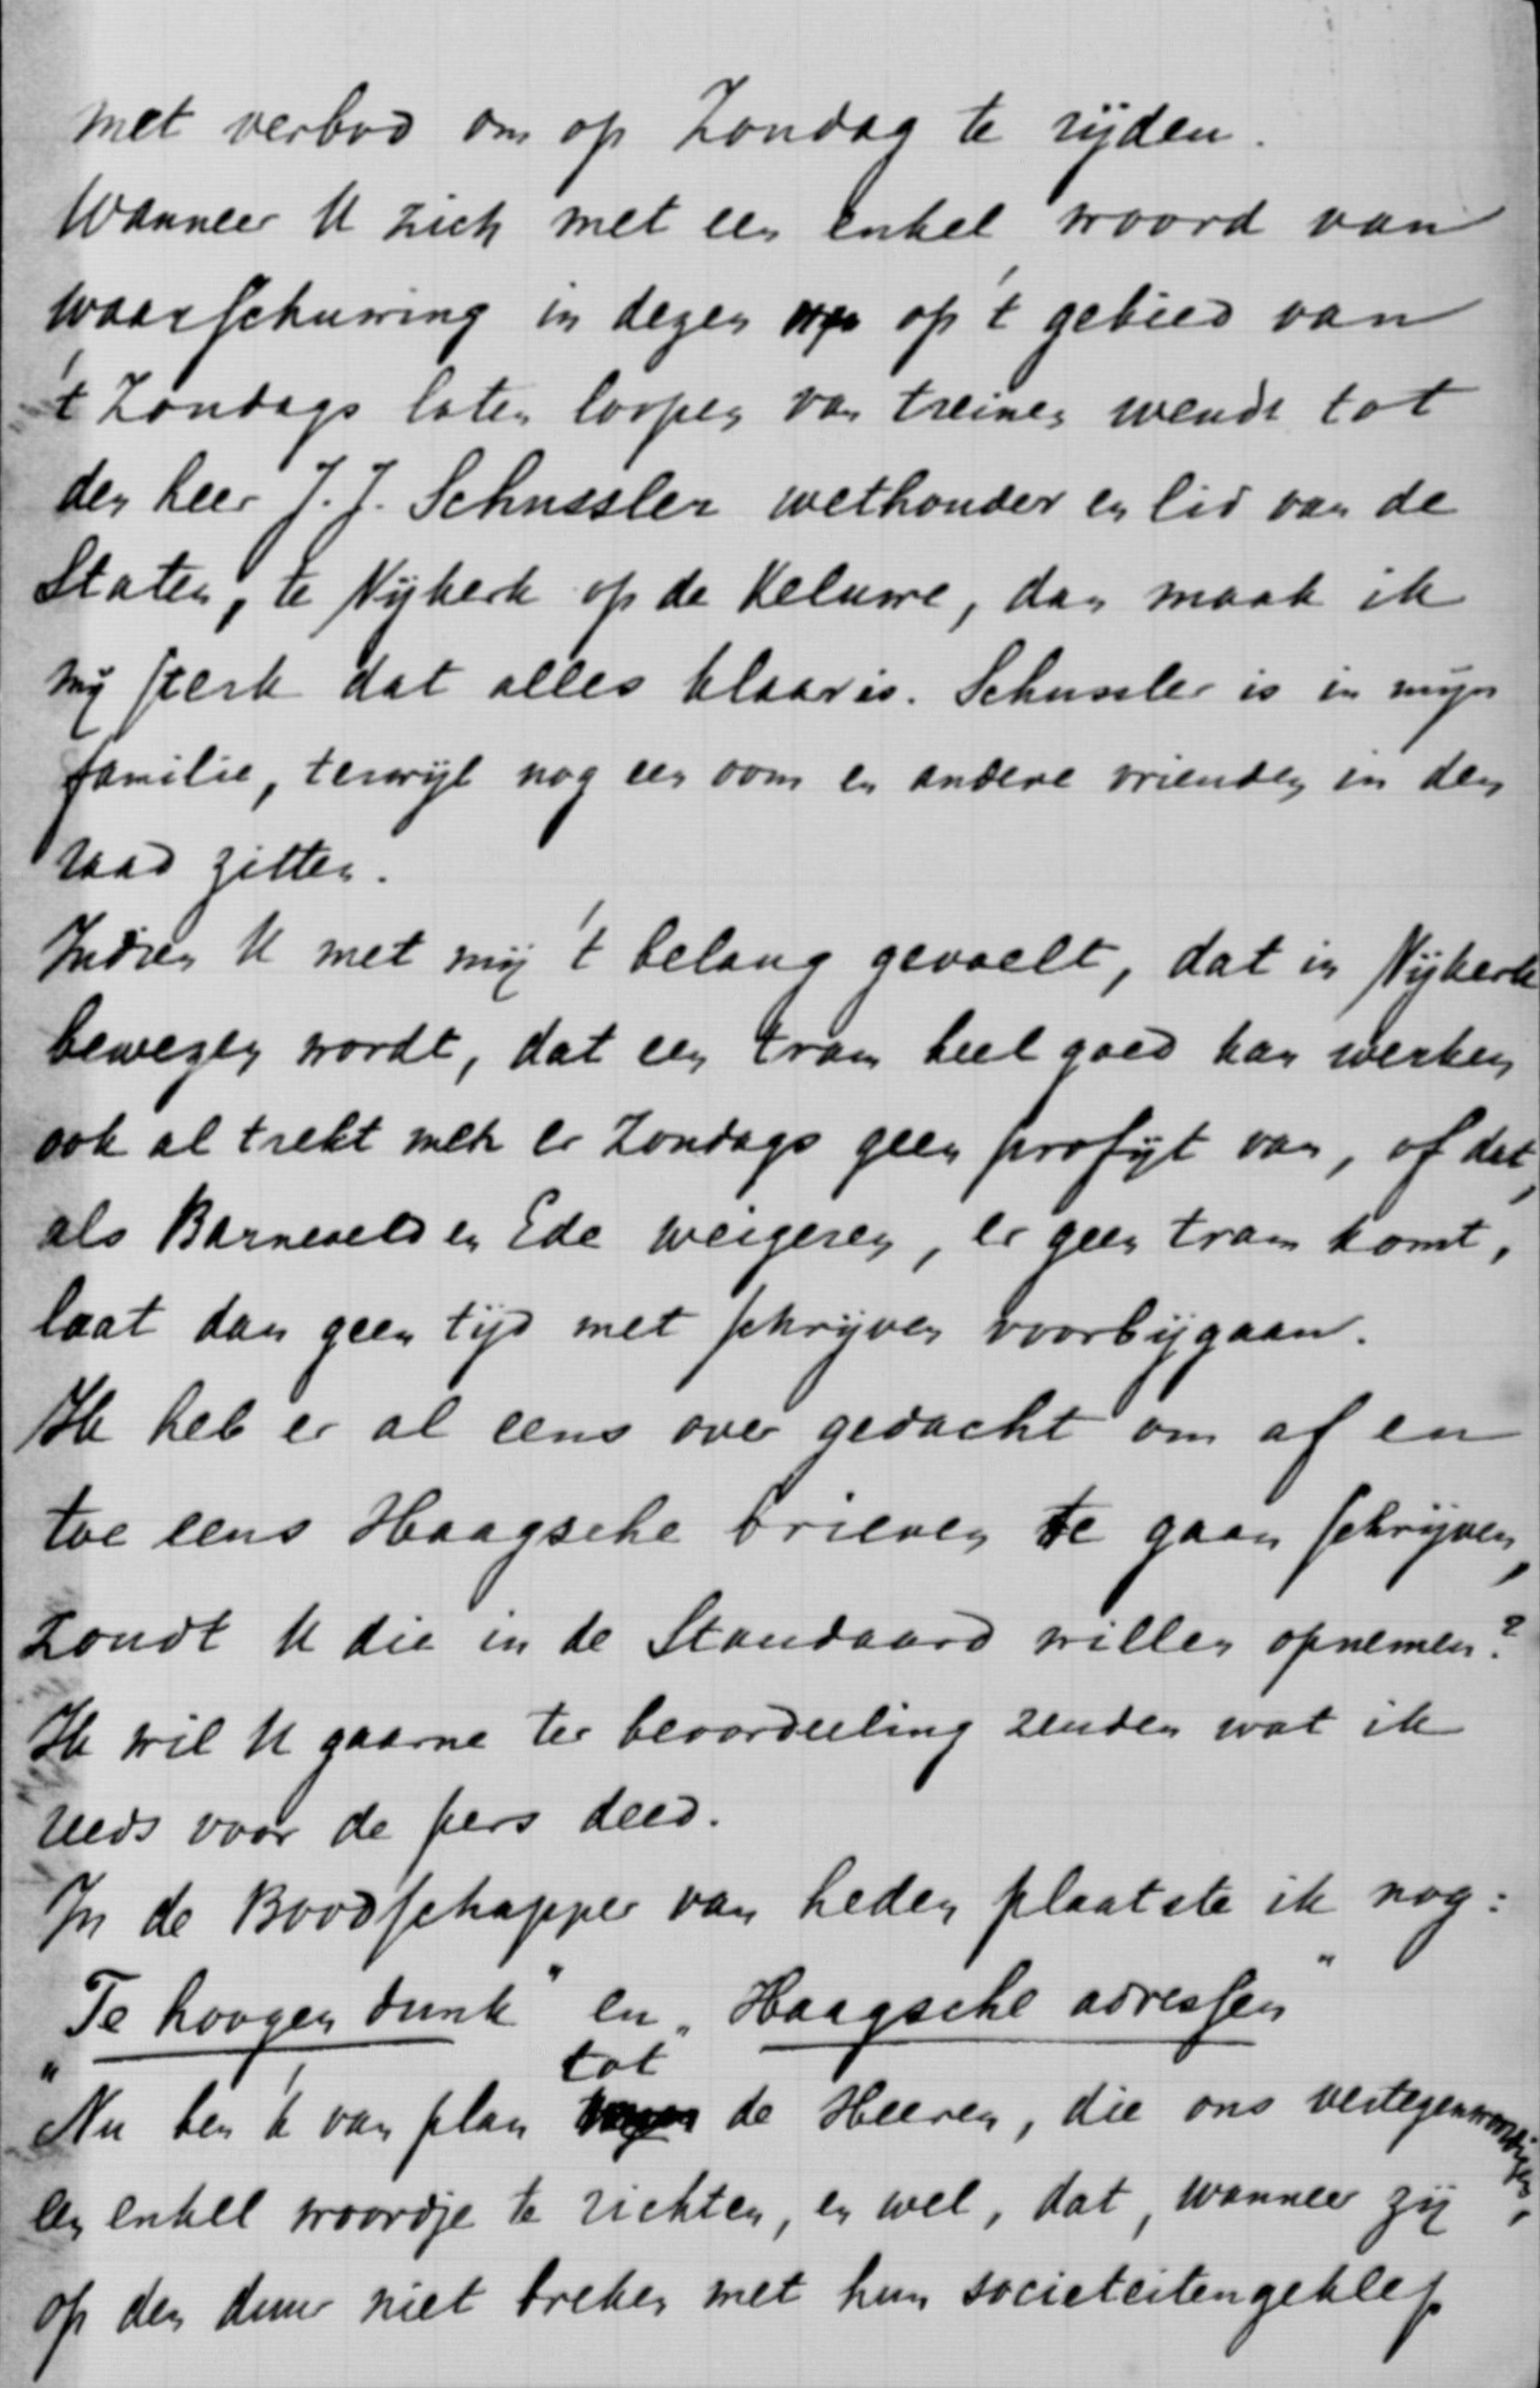 met verbod om op Zondag te rijden.
Wanneer U zich met een enkel woord van
waarschuwing in dezen op 't gebied van
't Zondags laten loopen van treinen wendt tot
den heer J. J. Schussler wethouder en lid van de
Staten, te Nijkerk op de Veluwe, dan maak ik
mij sterk dat alles klaar is. Schussler is in mijn
familie, terwijl nog een oom en andere vrienden in den
raad zitten.
Indien U met mij 't belang gevoelt, dat in Nijkerk
bewezen wordt, dat een tram heel goed kan werken
ook al trekt men er Zondags geen profijt van, of dat,
als Barneveld en Ede weigeren, er geen tram komt,
laat dan geen tijd met schrijven voorbijgaan.
Ik heb er al eens over gedacht om af en
toe eens Haagsche brieven te gaan schrijven,
zoudt U die in de Standaard willen opnemen?
Ik wil U gaarne ter beoordeeling zenden wat ik
reeds voor de pers deed.
In de Boodschapper van heden plaatste ik nog:
"Te hoogen dunk" en "Haagsche adressen"
Nu ben 'k van plan tot de Heeren, die ons vertegenwoordigen,
een enkel woordje te richten, en wel, dat, wanneer zij
op den duur niet breken met hun societeitengeklep